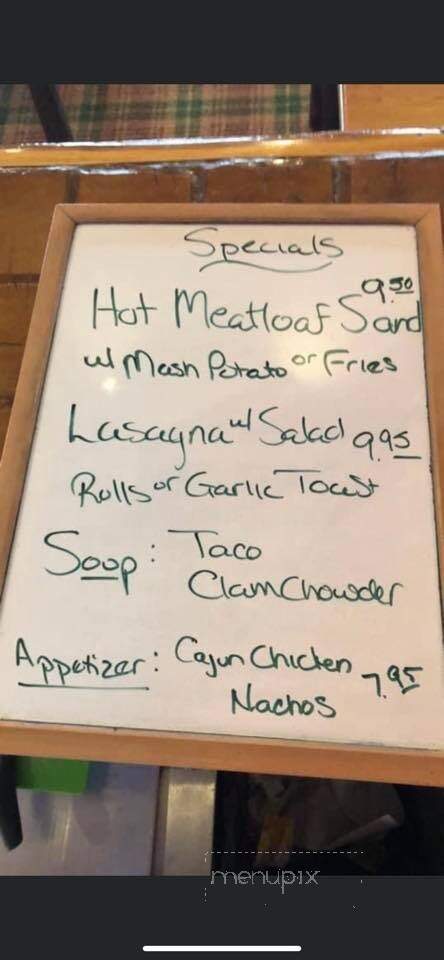 Specials
9.50
Hot Meatloaf Sand
w/ Mash Potato or Fries
Lasagna w/ Salad 9.95
Rolls or Garlic Toast
Soop: Taco
Clam Chowder
Appetizer: Cajun Chicken 7.95
Nachos
menupix